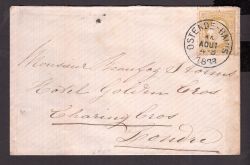 OSTENDE-BAINS
AOUT
Monsieur
Hotel Golden Cros
Charing Cros
Londre